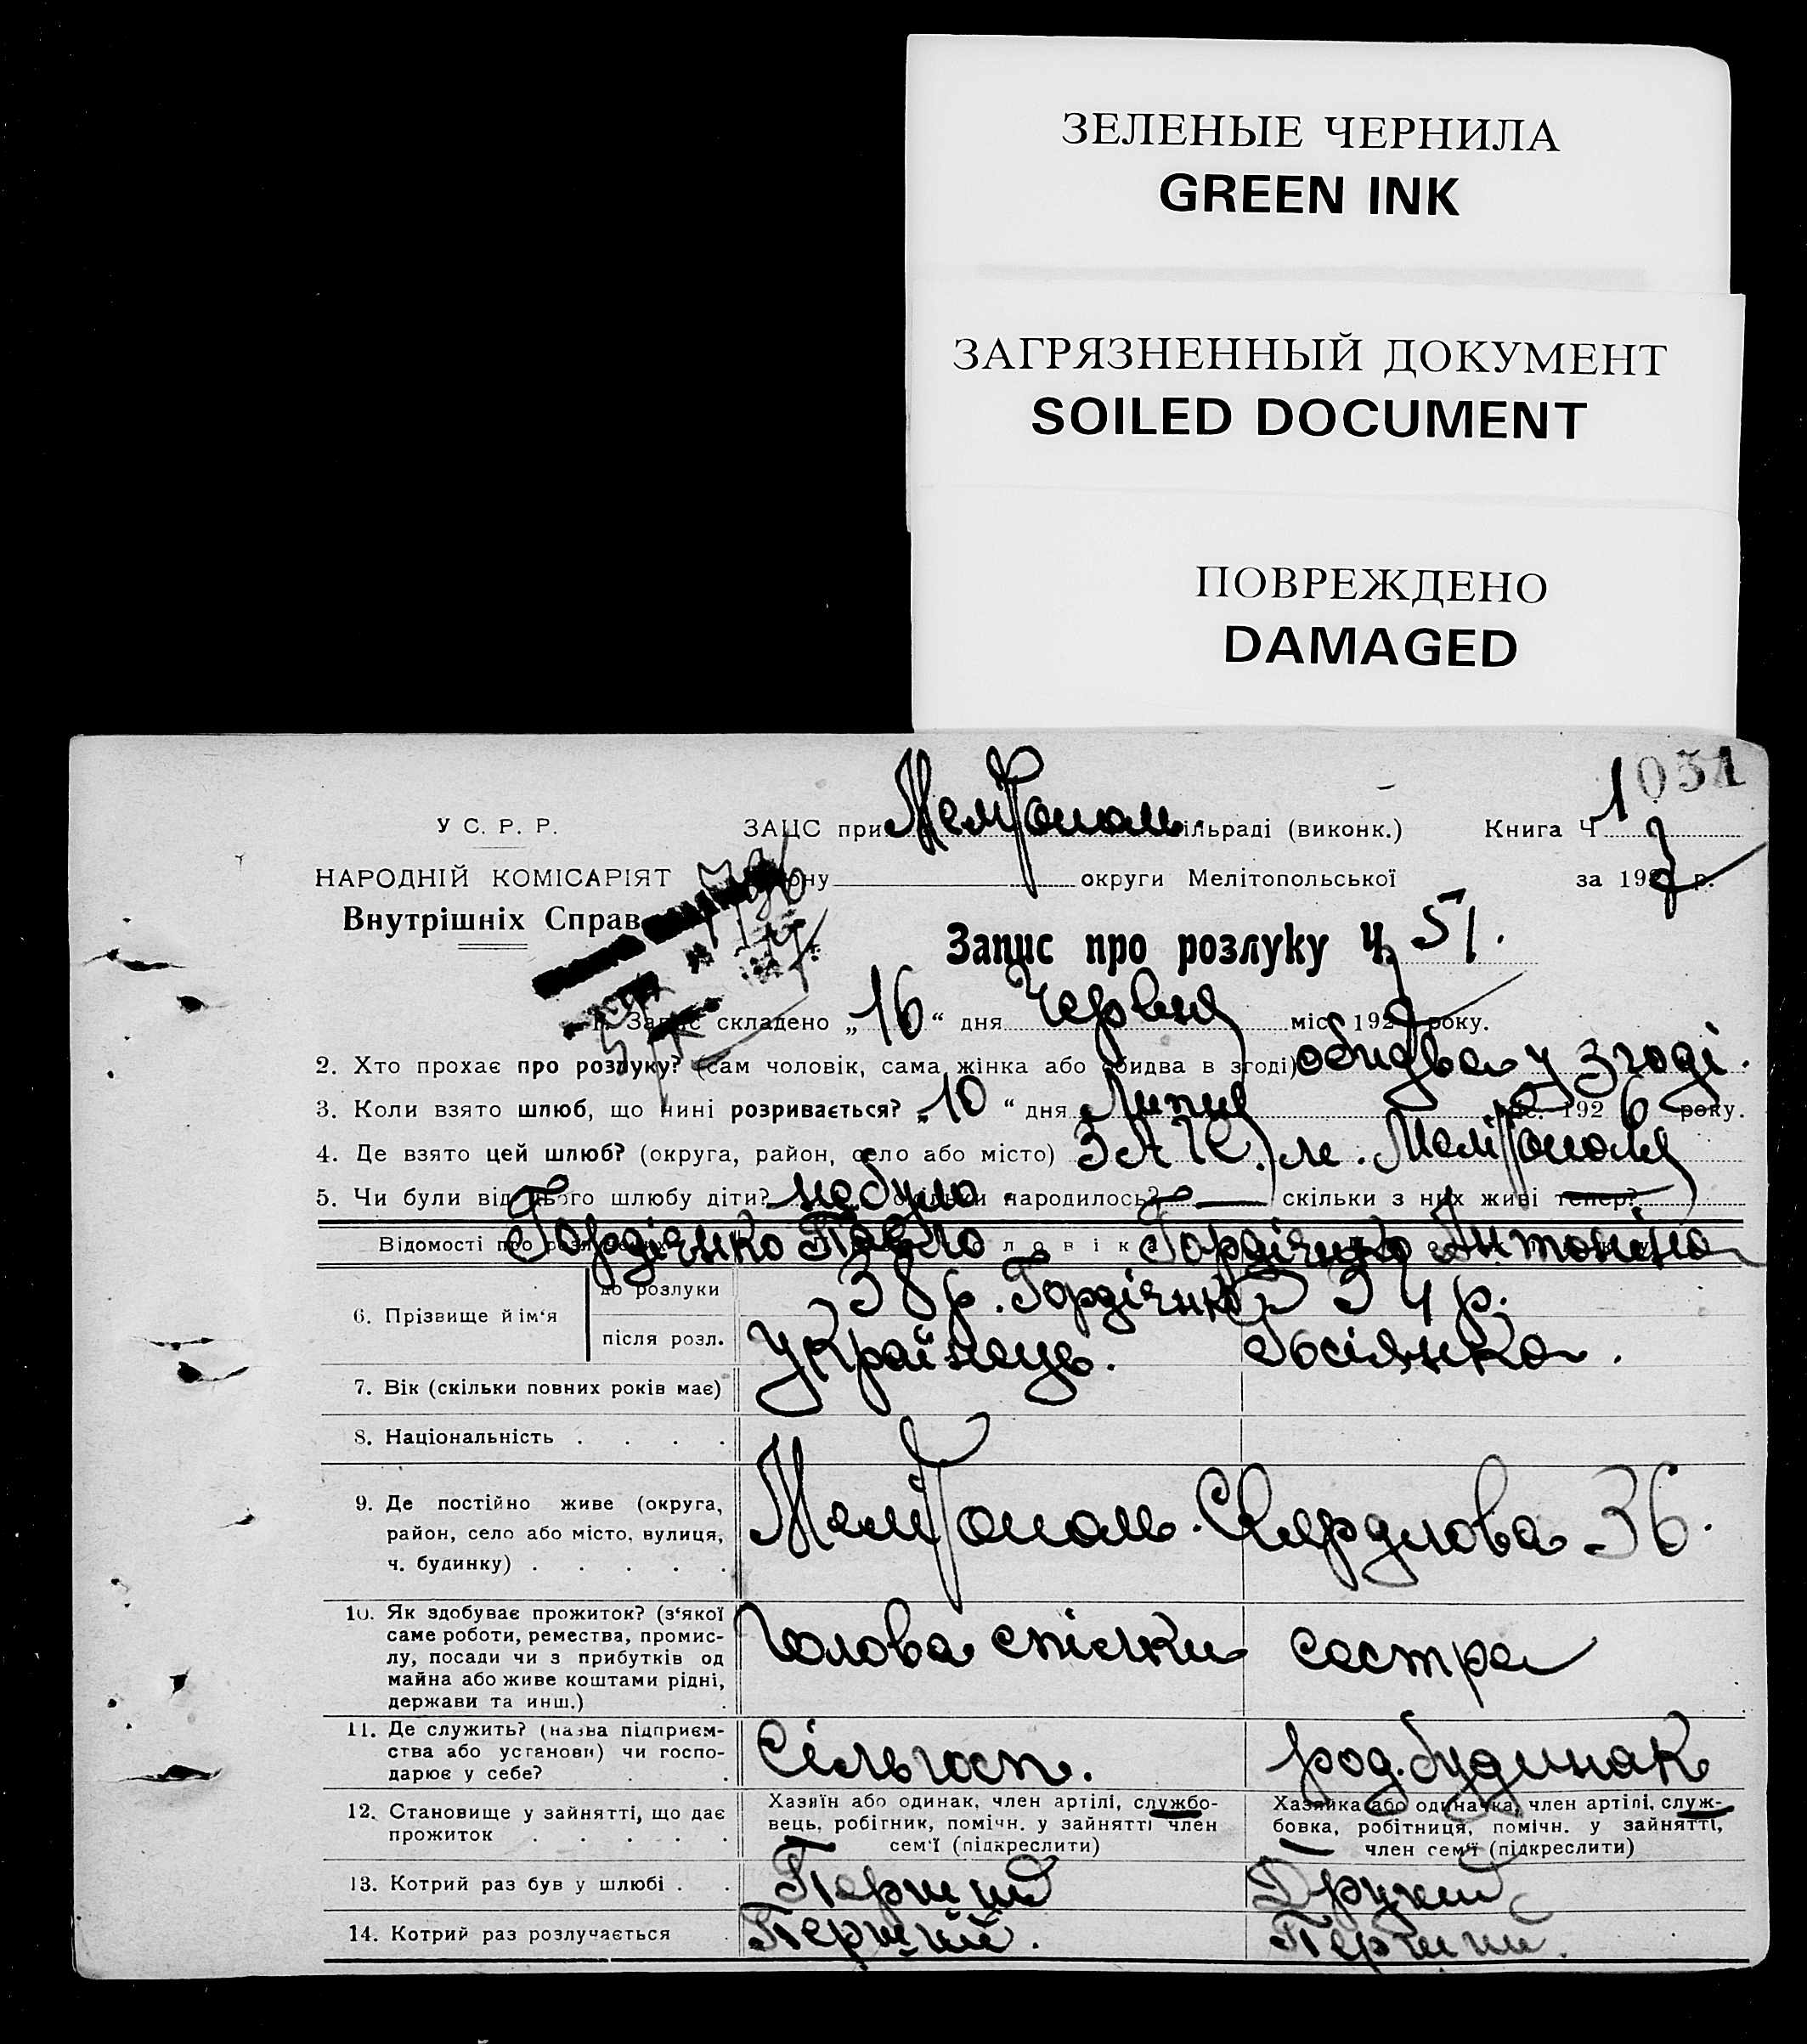 ЗЕЛЕНЫЕ ЧЕРНИЛА
GREEN INK
ЗАГРЯЗНЕННЫЙ ДОКУМЕНТ
SOILED DOCUMENT
ПОВРЕЖДЕНО
DAMAGED
1051
У С. Р. Р.
НАРОДНІЙ КОМІСАРІЯТ
Внутрішніх Справ
ЗАЦС при Мелітополь. ільраді (виконк.) Книга Ч 1
округи Мелітопольської за 1927 р.
Запис про розлуку Ч. 51.
1. Запис складено „16“ дня Червня міс. 1927 року.
2. Хто прохає про розлуку? (сам чоловік, сама жінка або обидва в згоді) обидва у згоді.
3. Коли взято шлюб, що нині розривається? „10“ дня Липня міс. 1926 року.
4. Де взято цей шлюб? (округа, район, село або місто) ЗАЦС, м. Мелітополя
5. Чи були від цього шлюбу діти? небуло. скільки народилось? — скільки з них живі тепер? —
Відомості про
Гордієнко Павло Гордієнко Антоніна
6. Прізвище й ім‘я
до розлуки
38 р. Гордієнко 34 р.
після розл.
Українець.
7. Вік (скільки повних років має)
8. Національність . . . .
9. Де постійно живе (округа, район, село або місто, вулиця, ч. будинку) . . . . .
Мелітополь. Свердлова 36.
10. Як здобуває прожиток? (з‘якої саме роботи, ремества, промислу, посади чи з прибутків од майна або живе коштами рідні, держави та инш.) .
Голова спілки сестра
11. Де служить? (назва підприємства або установи) чи господарює у себе? . .
Сільгосп. род. будинок
12. Становище у зайнятті, що дає прожиток . . . . .
Хазяїн або одинак, член артілі, службовець, робітник, помічн. у зайнятті член сем‘ї (підкреслити)
Хазяйка або одиначка, член артілі, службовка, робітниця, помічн. у зайнятті, член сем‘ї (підкреслити)
13. Котрий раз був у шлюбі . .
Перший Другий
14. Котрий раз розлучається .
Перший. Перший.